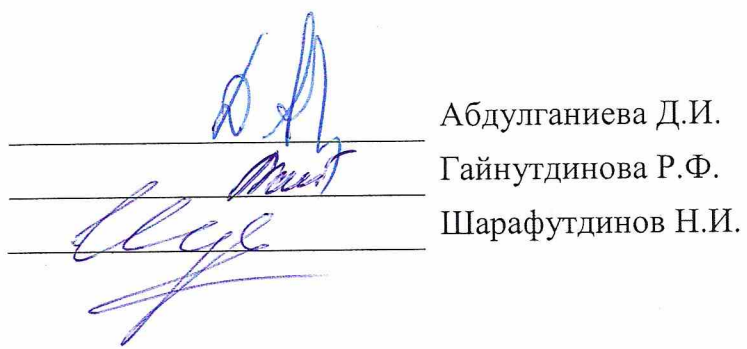 Абдулганиева Д.И.
Гайнутдинова Р.Ф.
Шарафутдинов Н.И.